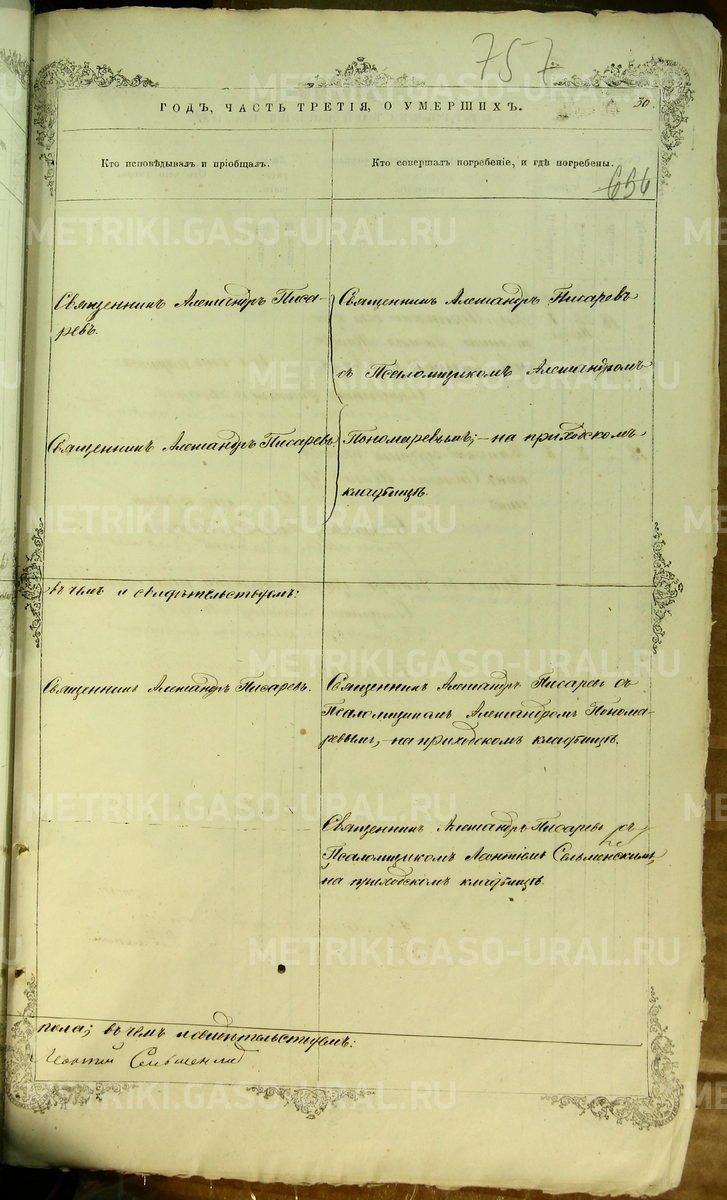 757
ГОДЪ, ЧАСТЬ ТРЕТІЯ, О УМЕРШИХЪ.
30.
Кто исповѣдывалъ и пріобщалъ.
Кто совершалъ погребеніе, и гдѣ погребены.
656
Священникъ Александръ Писа-
ревъ.
Священникъ Александръ Писаревъ
съ Псаломщикомъ Александромъ
Священникъ Александръ Писаревъ.
Пономаревымъ; – на приходскомъ
кладбищѣ.
въ чемъ и свидѣтельствуемъ:
Священникъ Александръ Писаревъ.
Священникъ Александръ Писаревъ съ
Псаломщикомъ Александромъ Понома-
ревымъ, – на приходскомъ кладбищѣ.
Священникъ Александръ Писаревъ съ
Псаломщикомъ Леонтіемъ
на приходскомъ кладбищѣ.
пола; въ чемъ и свидѣтельствуемъ:
METRIKI.GASO-URAL.RU